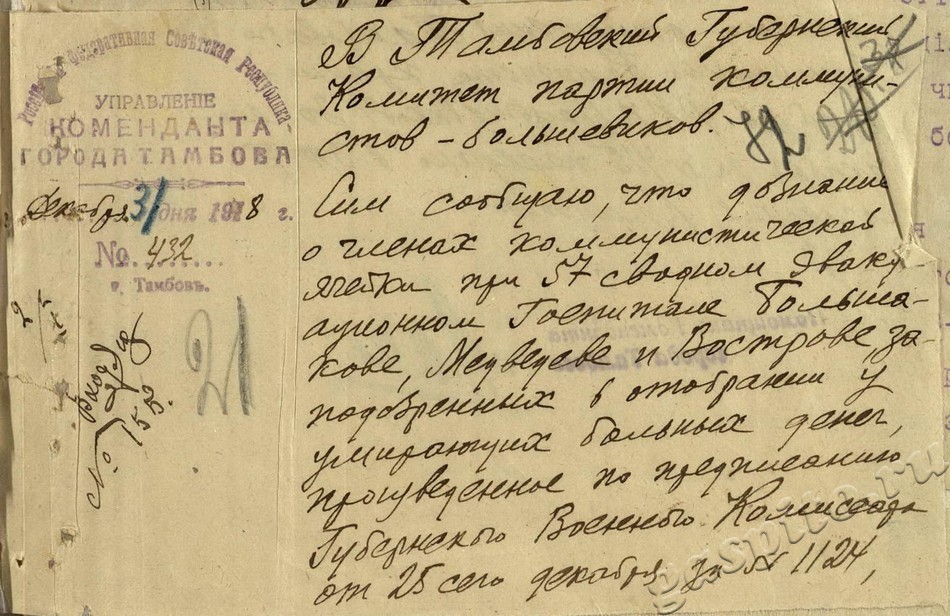 Российская Федеративная Советская Республика
УПРАВЛЕНІЕ
КОМЕНДАНТА
ГОРОДА ТАМБОВА
Декабря 31 дня 1918 г.
№ 432
г. Тамбовъ.
21
В Тамбовский Губернский
Комитет партии коммуни-
стов - большевиков.
37
Сим сообщаю, что дознание
о членах коммунистической
ячейки при 57 сводном эваку-
ационном Госпитале Больша-
кове, Медведеве и Вострове, за-
подозренных в отобрании у
умирающих больных денег,
произведенное по предписанию
Губернского Военного Комиссара
от 25 сего декабря за № 1124,
gaspito.ru